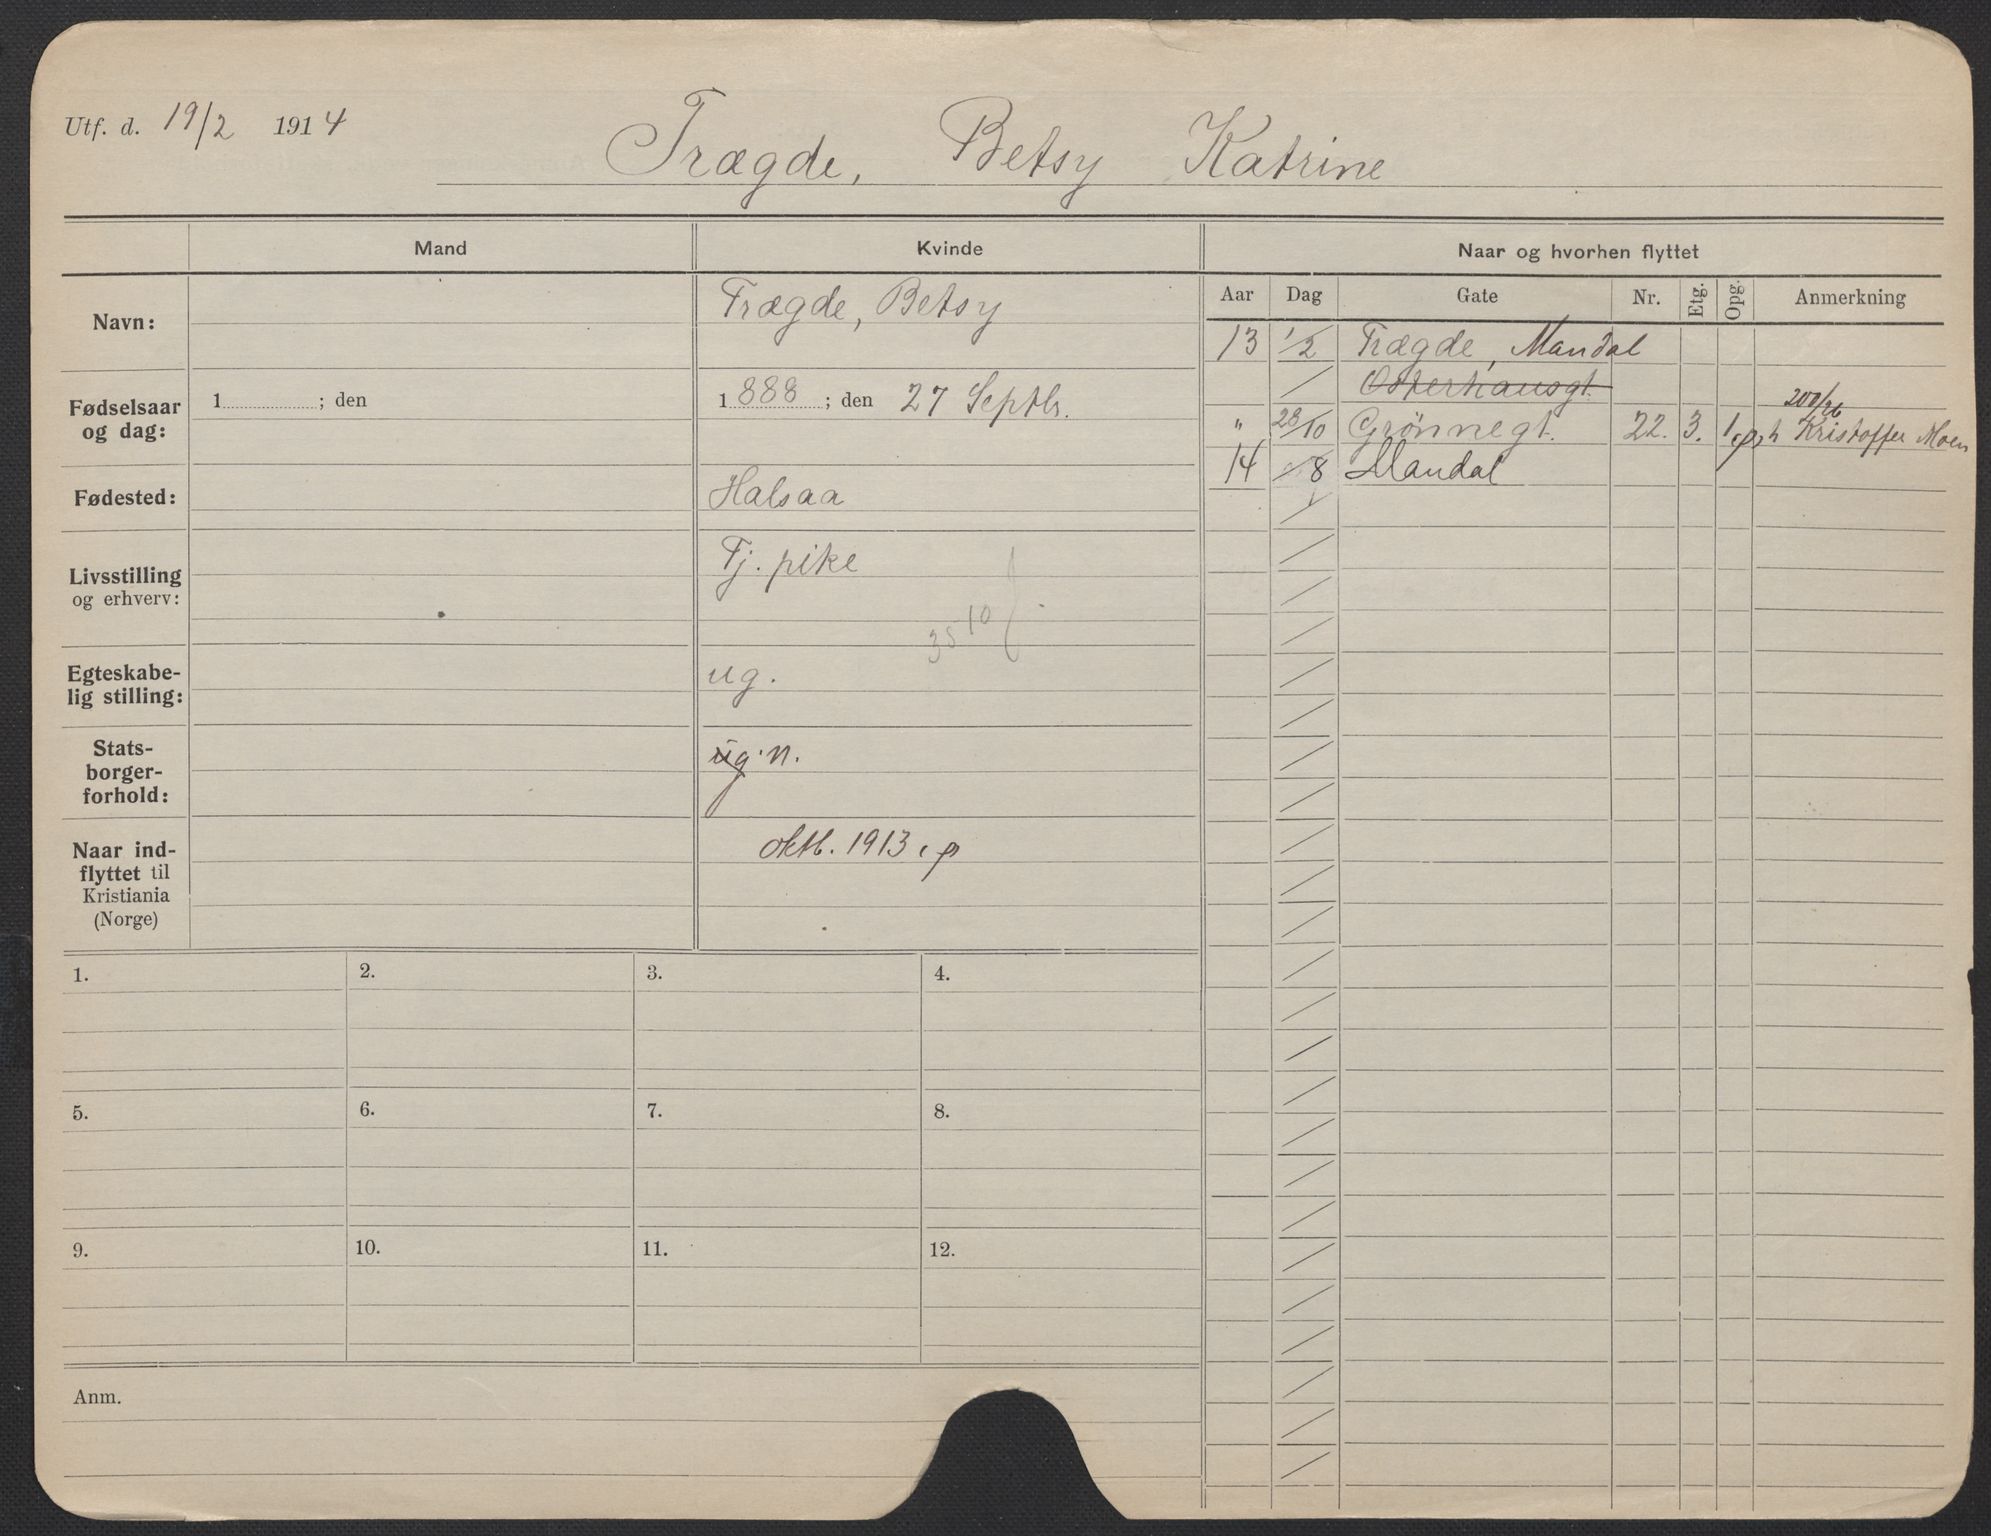 Utf. d. 19/2 1914
Trægde, Betsy Katrine
Mand
Kvinde
Naar og hvorhen flyttet
Aar Dag Gate Nr. Etg. Opg. Anmerkning
Navn:
Trægde, Betsy
Fødselsaar
og dag:
1 ; den
1888; den 27 Septbr.
Fødested:
Halsaa
Livsstilling
og erhverv:
Tj. pike
35 10
Egteskabe-
lig stilling:
ug.
Stats-
borger-
forhold:
ug. n.
Naar ind-
flyttet til
Kristiania
(Norge)
oktb. 1913
13 1/2 Trægde, Mandal
Osterhausgt.
200/26
" 28/10 Grønnegt. 22. 3. 1 h Kristoffer Moen
14 /8 Mandal
1. 2. 3. 4.
5. 6. 7. 8.
9. 10. 11. 12.
Anm.